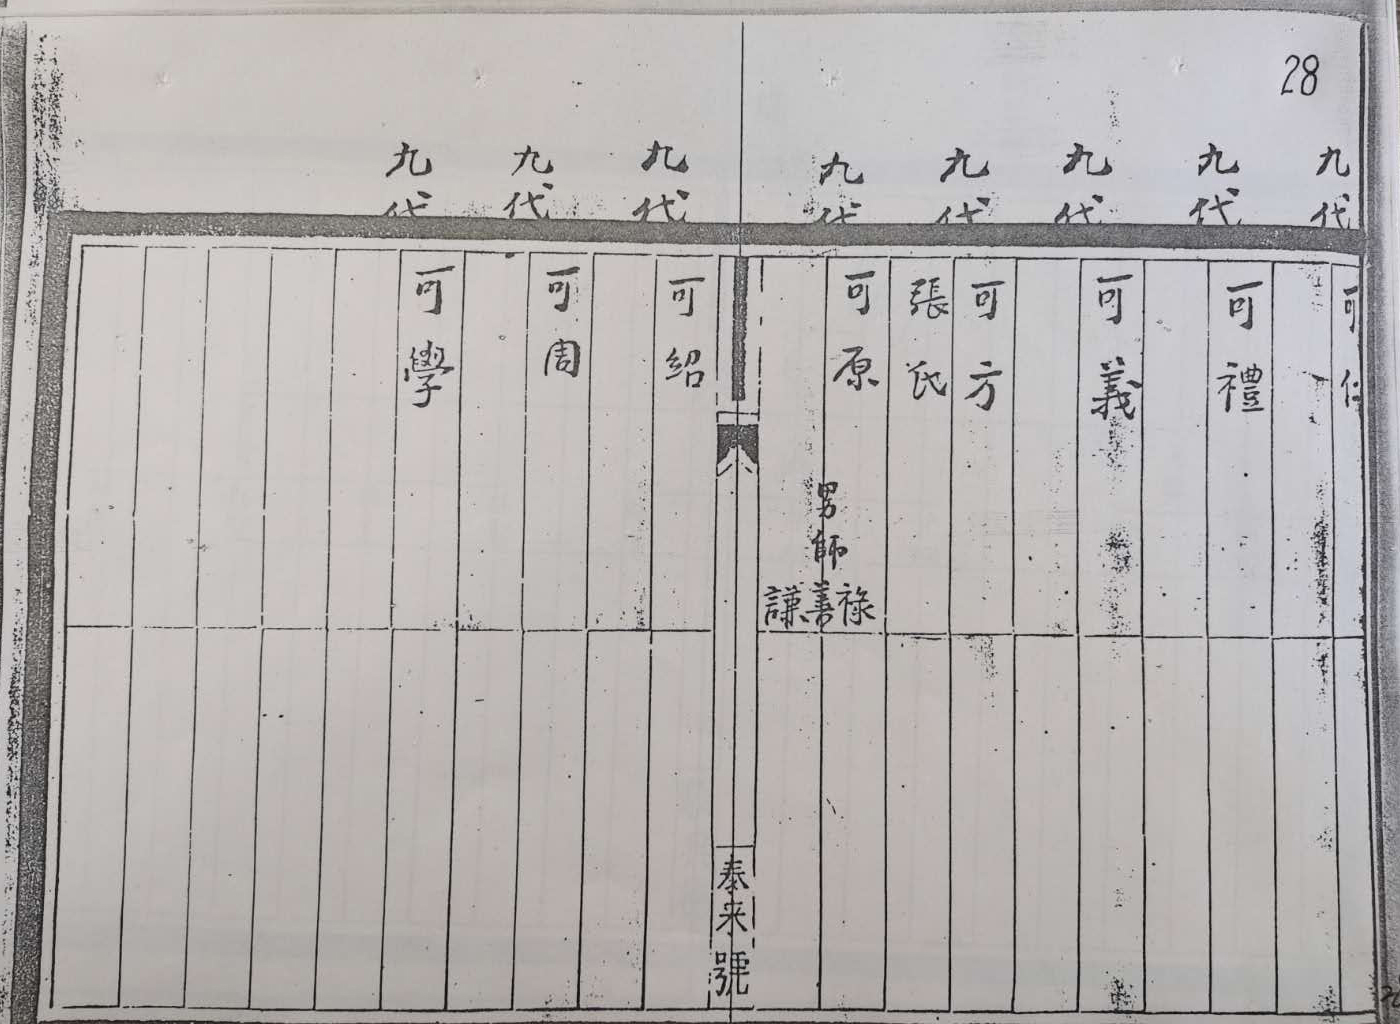 28
九代
可
九代
可禮
九代
可義
九代
可方
張氏
九代
可原
男師
祿
善
謙
泰来號
九代
可紹
九代
可周
九代
可學